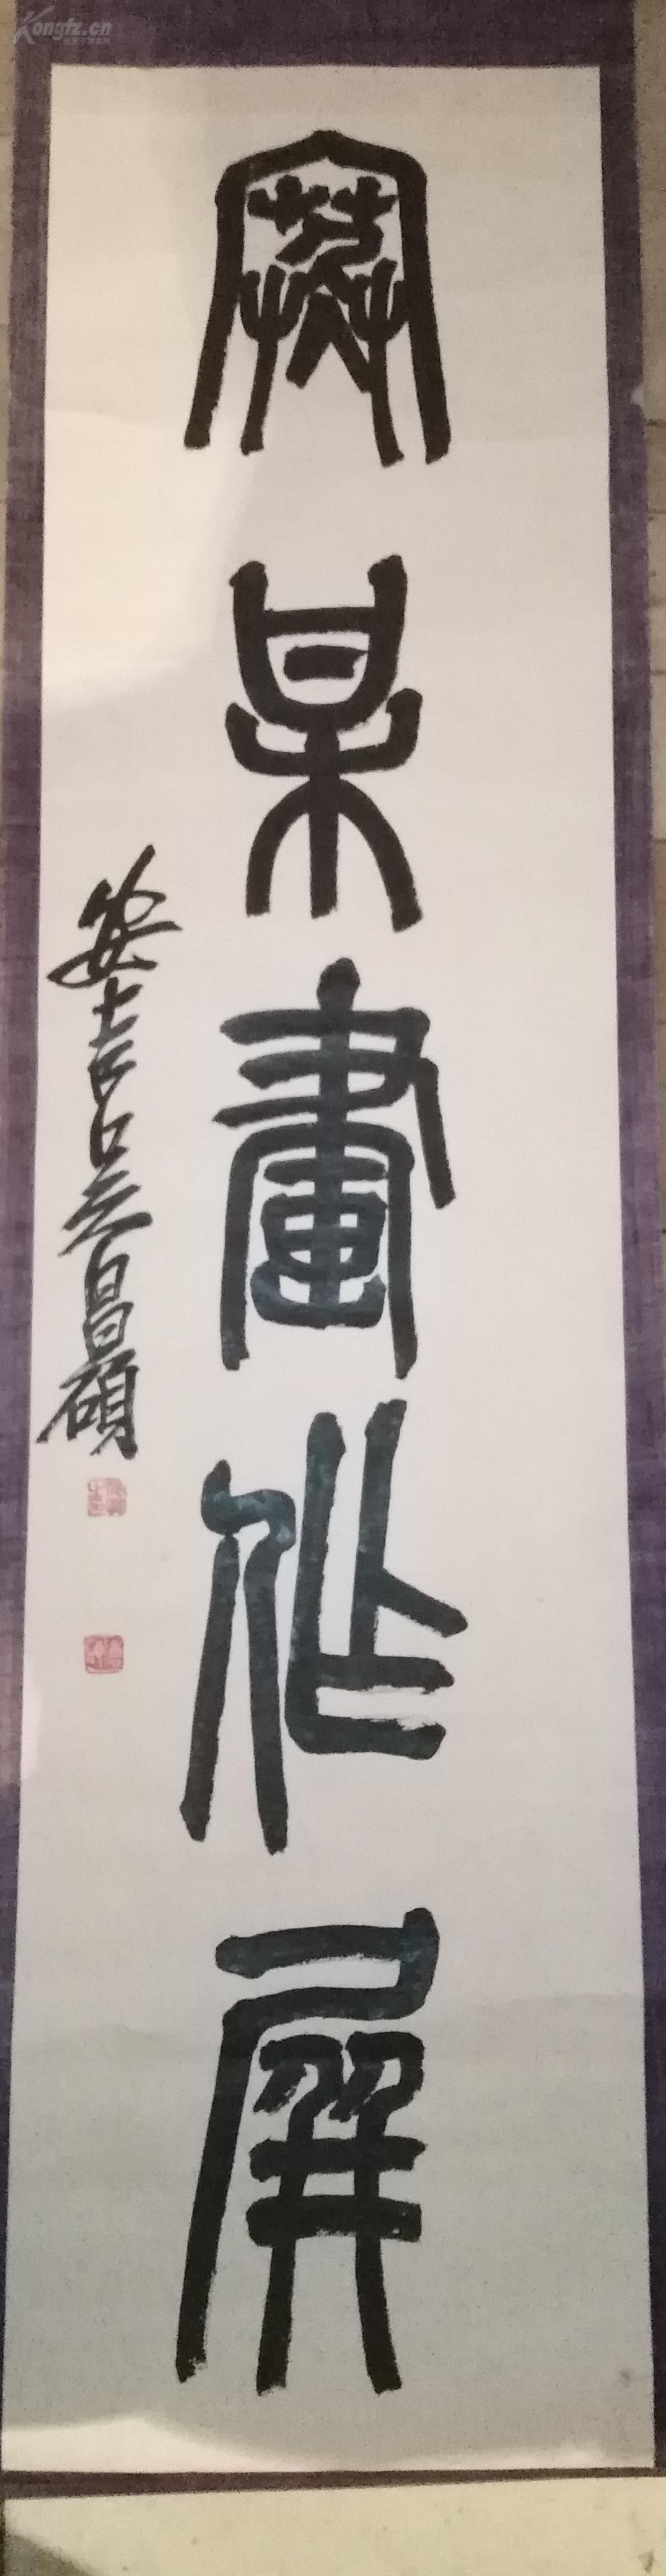 Kongfz.cn
寒某畫作屏
安吉吳昌碩